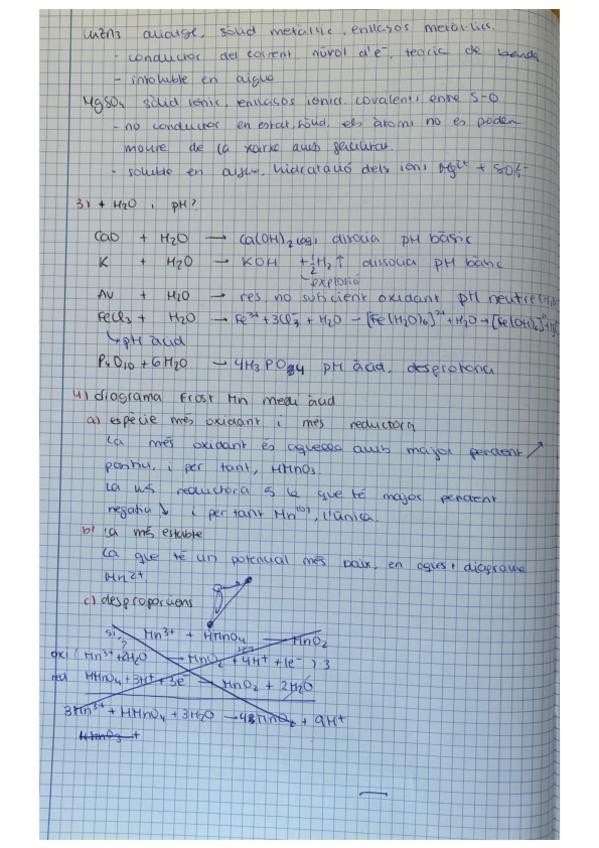 CuZn3 aliatge, sòlid metàl·lic, enllaços metàl·lics.
- conductor del corrent, núvol d'e⁻, teoria de bandes
- insoluble en aigua
MgSO4 sòlid iònic, enllaços iònics, covalents entre S-O
- no conductor en estat sòlid, els àtoms no es poden
moure de la xarxa amb facilitat.
- soluble en aigua, hidratació dels ions Mg²⁺ + SO4²⁻
3) + H2O i pH?
CaO + H2O → Ca(OH)2 (aq) dissocia pH bàsic
K + H2O → KOH + ½H2↑ dissocia pH bàsic
explosió
Au + H2O → res, no suficient oxidant pH neutre
FeCl3 + H2O → Fe³⁺ + 3Cl⁻ + H2O → [Fe(H2O)6]³⁺ + H2O →
↳ pH àcid
P4O10 + 6H2O → 4H3PO4 pH àcid, desprotona
4) diagrama Frost Mn medi àcid
a) espècie més oxidant i més reductora
La més oxidant és aquella amb major pendent ↗
positiu, i per tant, HMnO3
La més reductora és la que té major pendent
negatiu ↘ i per tant Mn⁽⁰⁾, l'única.
b) la més estable
La que té un potencial més baix, en aquest diagrama
Mn²⁺
c) desproporcions
sí? Mn³⁺ + HMnO4 → MnO2
oxi (Mn³⁺ + 2H2O → MnO2 + 4H⁺ + 1e⁻) 3
red HMnO4 + 3H⁺ + 3e⁻ → MnO2 + 2H2O
3Mn³⁺ + HMnO4 + 3H2O → 4MnO2 + 9H⁺